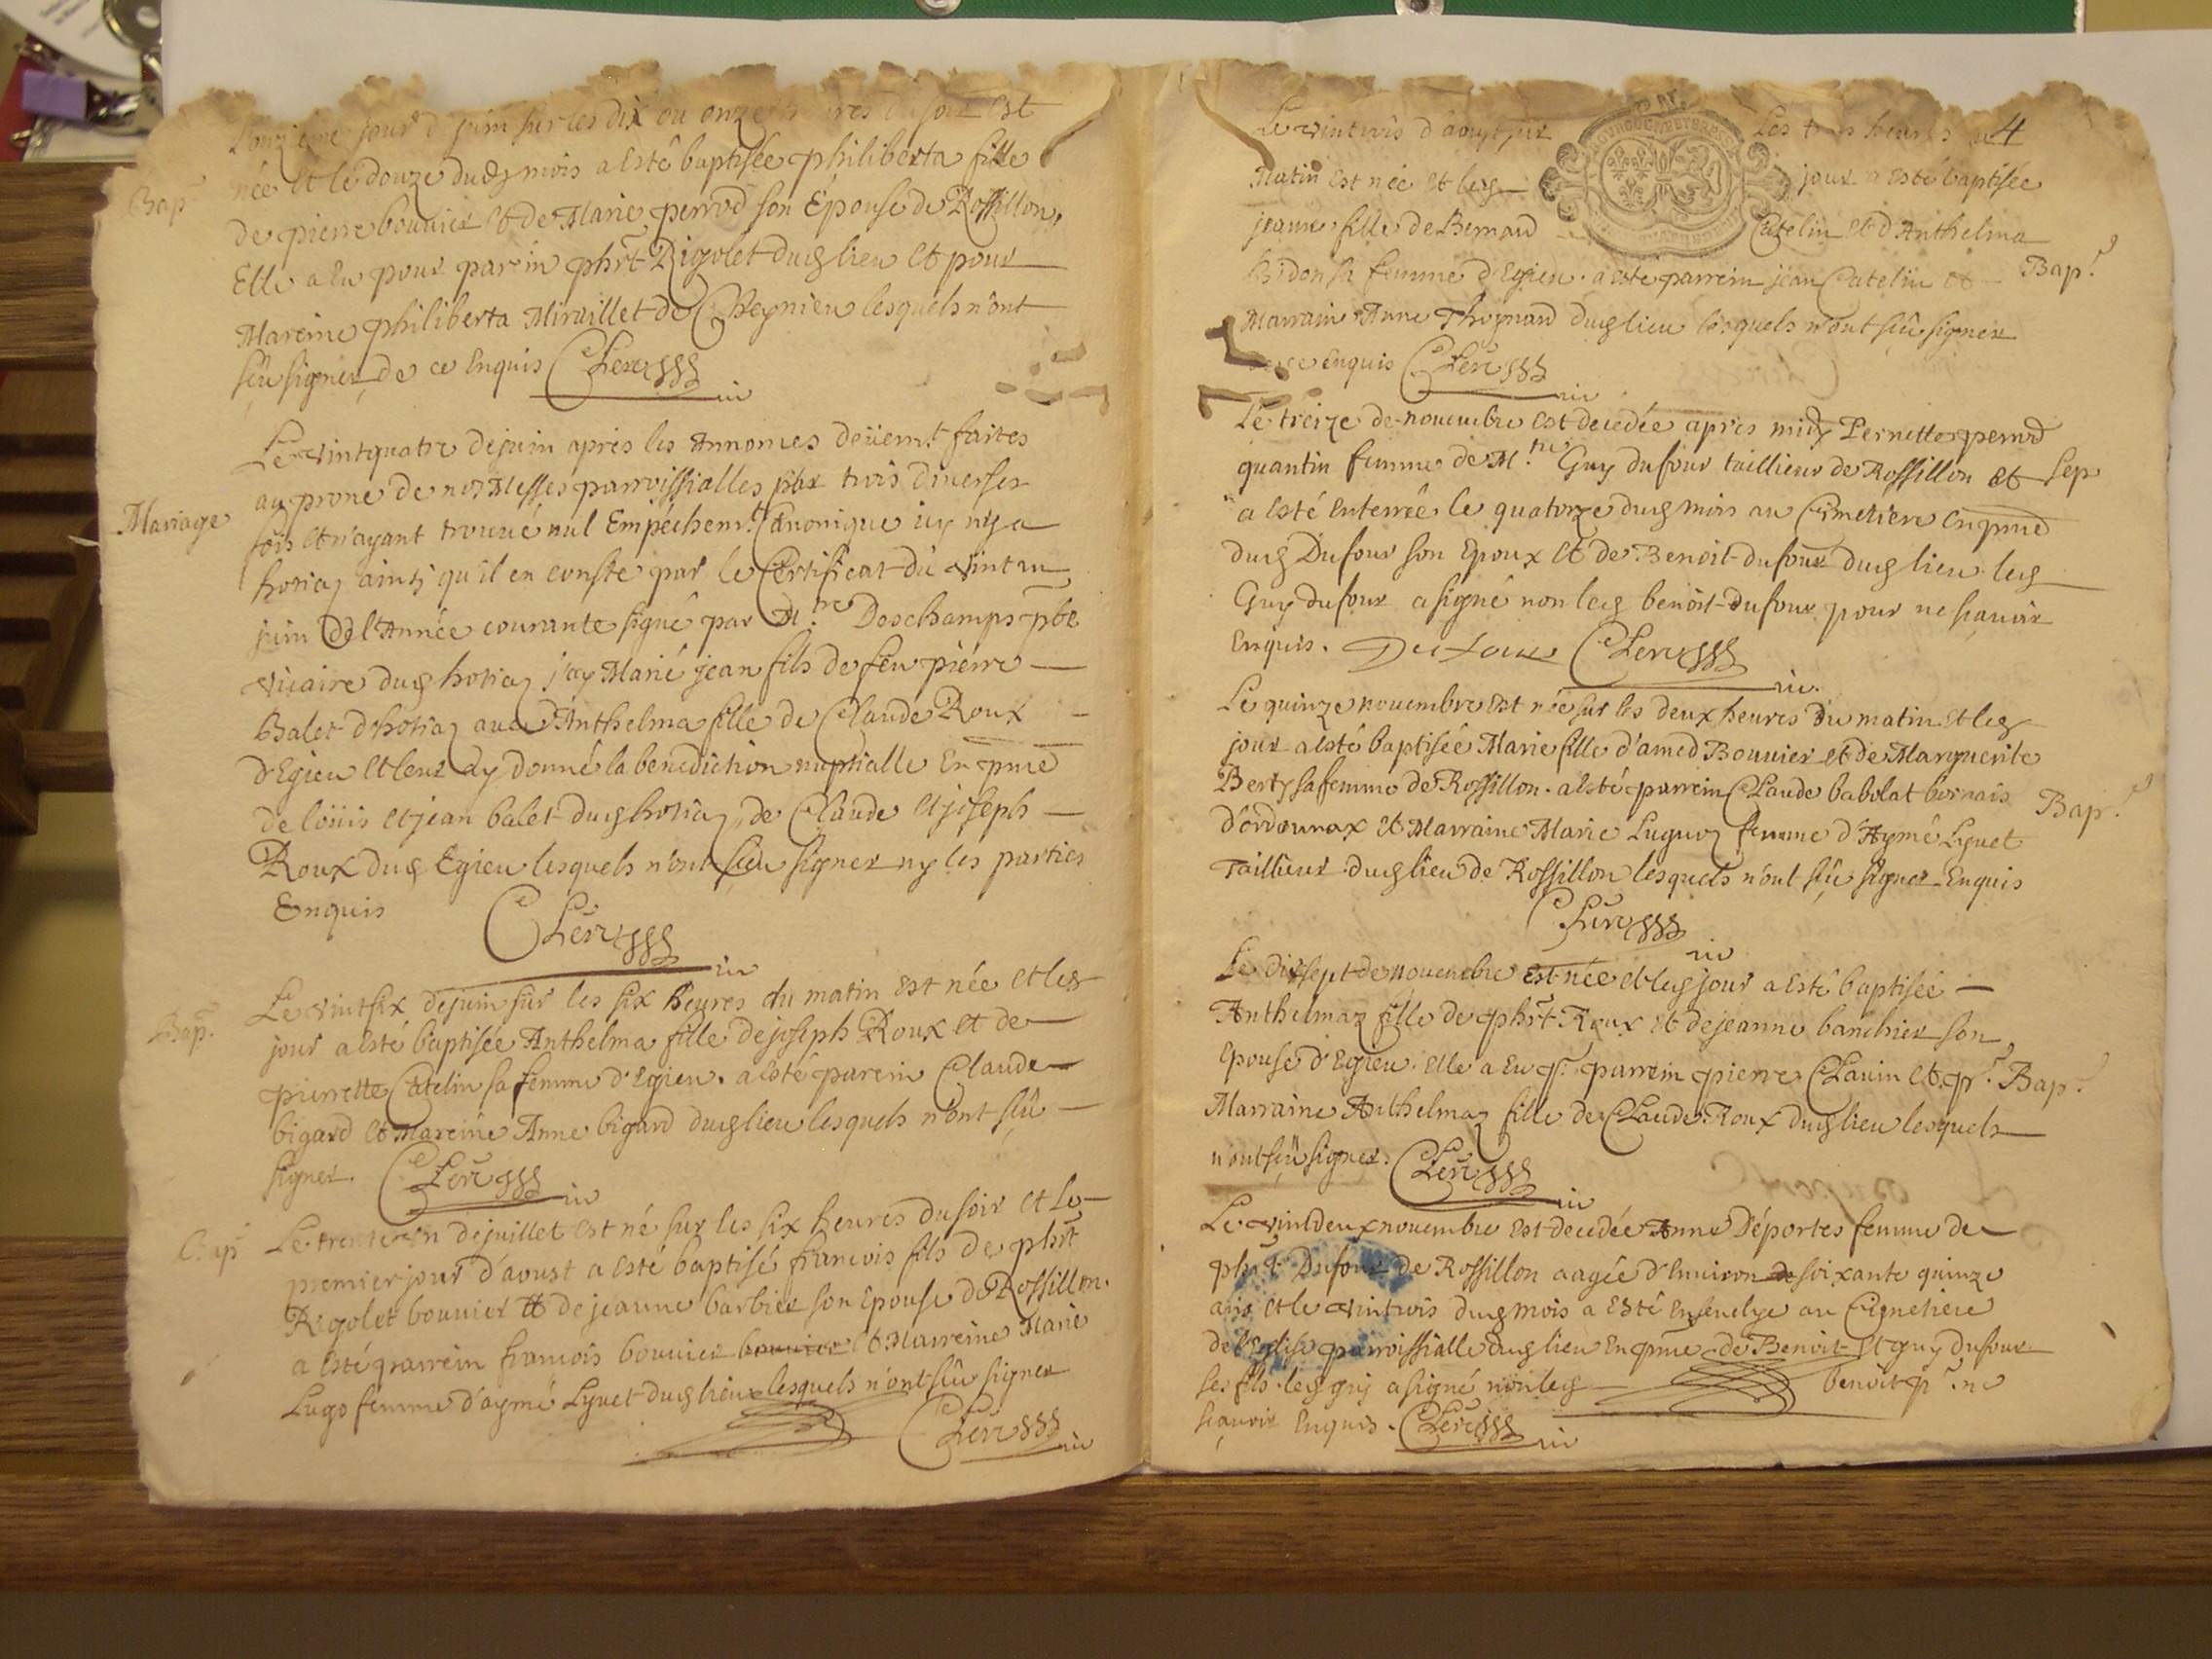 L'onzieme jour d juin sur les dix ou onze heures du soir est
Bap.
née et le douze dud. mois a esté baptisée philiberta fille
de pierre bouvier et de Marie perrod son Épouse de Rossillon,
Elle a eu pour parrin phrt Rigolet dud. lieu et pour
Mareine philiberta Miraillet de Cheynieu lesquels n'ont
sçû signer de ce Enquis Clerc
Le vintquatre de juin aprés les Annonces deüemt. faites
au prone de nos Messes parroissialles par trois diverses
Mariage
fois et n'ayant trouvé nul Empéchemt. Canonique icy ny a
hotiaz ainsi qu'il en conste par le Certificat du vint un
juin de l'Année courante signé par Mtre. Deschamps pbre
vicaire dud. hotiaz j'ay Marié jean fils de feu piérre
Balet d'hotiaz avec Anthelma fille de Claude Roux
d'Egieu et leur ay donné la benediction nuptialle En pnce
de loüis et jean balet dud. hotiaz, de Claude et joseph
Roux dud. Egieu lesquels n'ont sceu signer ny les parties
Enquis Clerc
Le vintsix de juin sur les six heures du matin est née et led.
Bap.
jour a esté baptisée Anthelma fille de joseph Roux et de
pierrette Catelin sa femme d'Egieu. a esté parein Claude
bigard et Mareine Anne bigard dud. lieu lesquels n'ont sçû
signer. Clerc
Bap
Le trente un de juillet est né sur les six heures du soir et le
premier jour d'aoust a esté baptisé francois fils de phrt
Rigolet bouvier et de jeanne barbier son Epouse de Rossillon.
a esté parrein francois bouvier bouvier et Marreine Marie
Lugo femme d'aymé Lyvet dud. lieu lesquels n'ont sçû signer
Clerc
4
Le vintrois d'aoust sur les trois heures du
Matin est née et led. jour a esté baptisée
jeanne fille de Bernard Catelin et d'Anthelma
Bidon sa femme d'Egieu. a esté parrein jean Catelin et
Bap.
Marraine Anne Thognard dud. lieu lesquels n'ont sçû signer
de ce enquis Clerc
Le treize de novembre est decedée aprés midy Pernette perrod
quantin femme de Mtre. Guy dufour taillieur de Rossillon et
Sep
a esté enterrée le quatorze dud. mois au Cimetiere en pnce
dud. Dufour son Epoux et de Benoit dufour dud. lieu led.
Guy dufour a signé non led. benoit dufour pour ne sçavoir
Enquis. Dufour Clerc
Le quinze novembre est née sur les deux heures du matin et led.
jour a esté baptisée Marie fille d'amed Bouvier et de Marguerite
Berty sa femme de Rossillon. a esté parrein Claude babolat bornais
Bap.
d'ordonnax et Marraine Marie Luguoz femme d'Aymé Lyvet
Taillieur dud. lieu de Rossillon lesquels n'ont sçû signer Enquis
Clerc
Le dixsept de novembre est née et led. jour a esté baptisée
Anthelmaz fille de phrt Roux et de jeanne banchier son
Epouse d'Egieu. Elle a eu pr. parrein pierre Clavin et pr.
Bap.
Marraine Anthelmaz fille de Claude Roux dud. lieu lesquels
n'ont sçû signer. Clerc
Le vintdeux novembre est decedée Anne Déportes femme de
phrt Dufour de Rossillon aagée d'environ de soixante quinze
ans et le vintrois dud. mois a esté ensevelye au Cimetiere
de l'Eglise parroissialle dud. lieu en pnce de Benoit et guy dufour
ses fils. led. guy a signé non led. benoit pr. ne
sçavoir Enquis. Clerc